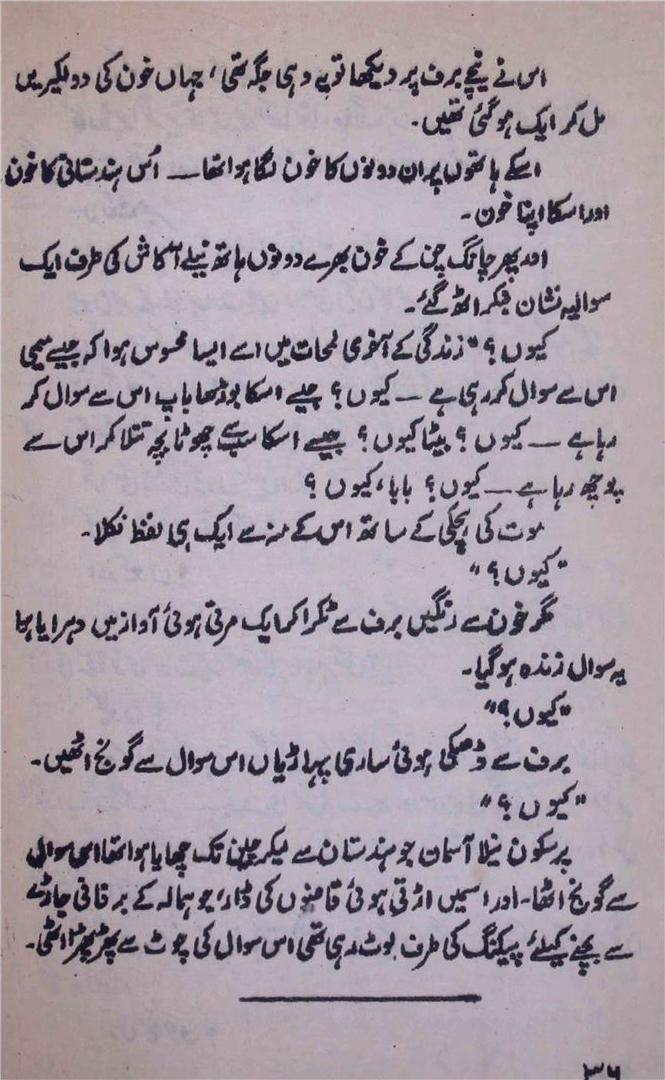 اس نے نیچے برف پر دیکھا تو یہ وہی جگہ تھی، جہاں خون کی دو لکیریں
مل کر ایک ہو گئی تھیں۔
اسکے ہاتھوں پر ان دونوں کا خون لگا ہوا تھا — اُس ہندستانی کا خون
اور اسکا اپنا خون۔
اور پھر چانگ چن کے خون بھرے دونوں ہاتھ نیلے آکاش کی طرف ایک
سوالیہ نشان بنکر اٹھ گئے۔
کیوں؟“ زندگی کے آخری لمحات میں اسے ایسا محسوس ہوا کہ جیسے میمی
اس سے سوال کر رہی ہے — کیوں؟ جیسے اسکا بوڑھا باپ اس سے سوال کر
رہا ہے — کیوں؟ بیٹا کیوں؟ جیسے اسکا سب سے چھوٹا بچہ تتلا کر اس سے
پوچھ رہا ہے — کیوں؟ بابا، کیوں؟
موت کی ہچکی کے ساتھ اس کے منہ سے ایک ہی لفظ نکلا۔
”کیوں؟“
مگر خون سے رنگین برف سے ٹکرا کر ایک مرتی ہوئی آواز میں دہرایا ہوا
یہ سوال زندہ ہو گیا۔
”کیوں؟“
برف سے ڈھکی ہوئی ساری پہاڑیاں اس سوال سے گونج اٹھیں۔
”کیوں؟“
پرسکون نیلا آسمان جو ہندستان سے لیکر چین تک چھایا ہوا تھا اسی سوال
سے گونج اٹھا۔ اور اسمیں اڑتی ہوئی قازوں کی ڈار، جو ہمالہ کے برفانی جاڑے
سے بچنے کیلئے پیکنگ کی طرف لوٹ رہی تھی اس سوال کی چوٹ سے پھڑپھڑا اٹھی۔